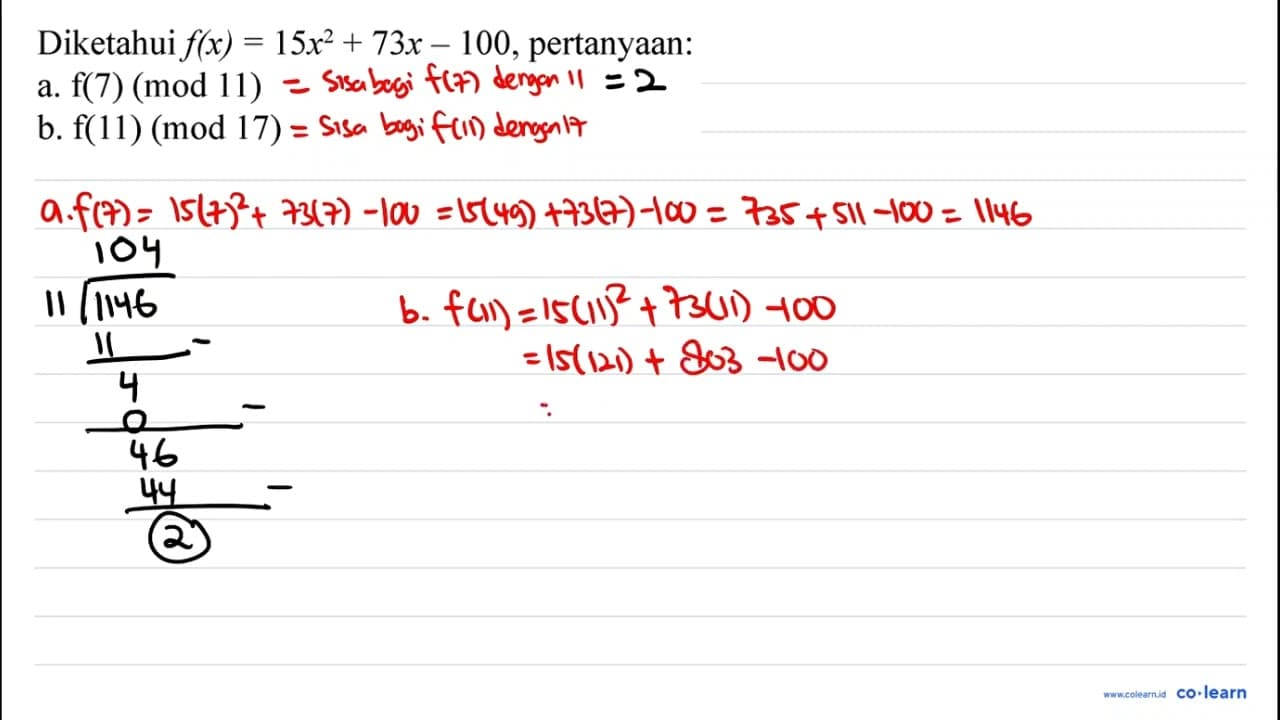 Diketahui f(x) = 15x² + 73x – 100, pertanyaan:
a. f(7) (mod 11) = Sisa bagi f(7) dengan 11 = 2
b. f(11) (mod 17) = Sisa bagi f(11) dengan 17
a. f(7) = 15(7)² + 73(7) - 100 = 15(49) + 73(7) - 100 = 735 + 511 - 100 = 1146
104
11 √1146
11 -
4
0 -
46
44 -
2
b. f(11) = 15(11)² + 73(11) - 100
= 15(121) + 803 - 100
=
www.colearn.id co·learn